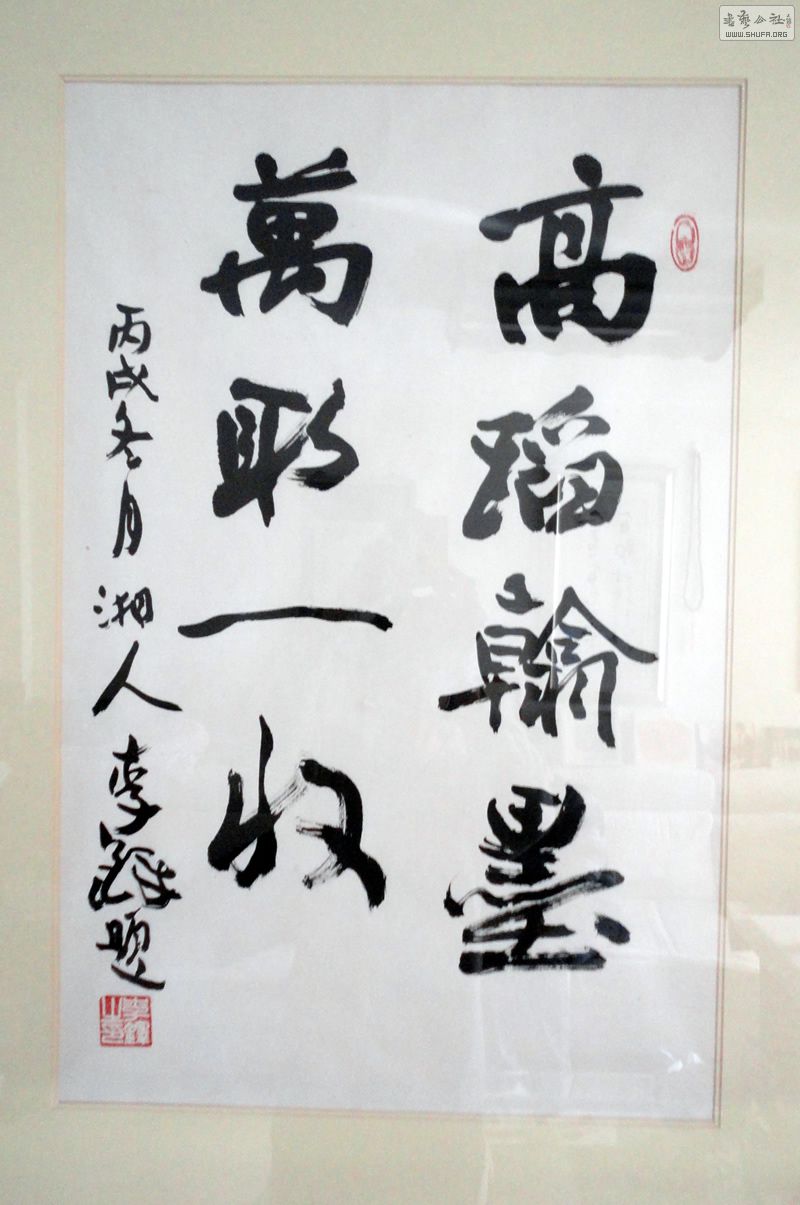 高瑫翰墨
萬取一收
丙戌冬月 湘人 李鐸題
書藝公社
WWW.SHUFA.ORG